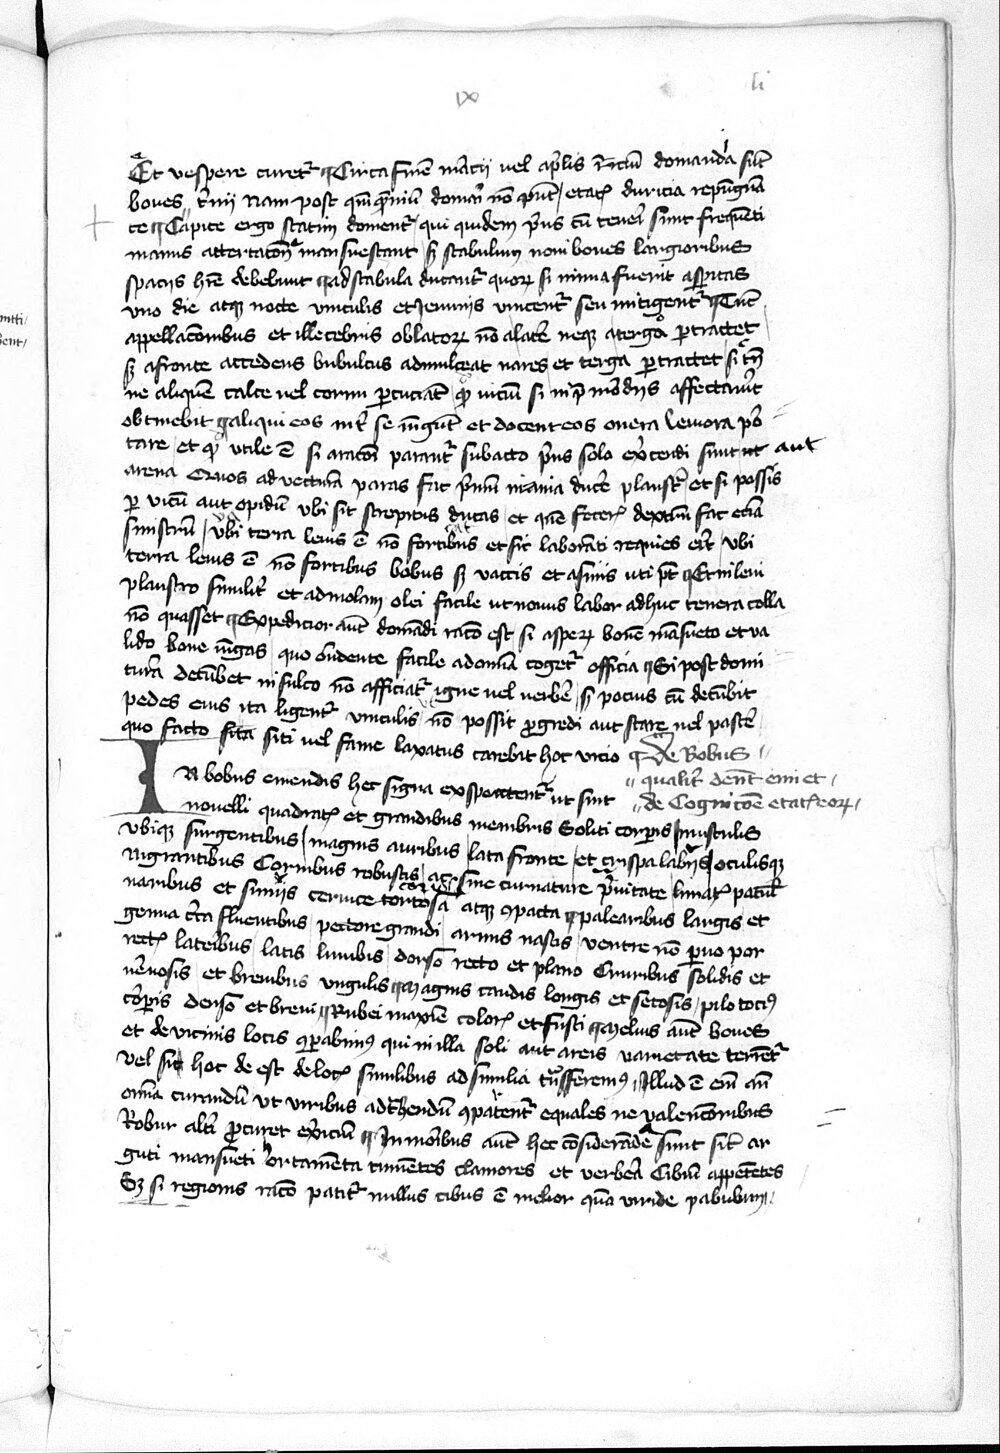 ix
li
Et vespere curetr̃ ¶ Circa finẽ marcij vel aprilis domandi sũt
boves trimi Nam post qũquẽniũ domari nõ pñt / etatis duricia repugnã
te ¶ Capite ergo statim domentr̃ / qui quidem prius cũ teneri sunt frequẽti
manus attrectatiõe mansuescant sʒ stabulum novi boves largioribus
spacijs hr̃e debebunt ¶ ad stabula ducantr̃ quorꝝ si nimia fuerit asperitas
vno die atqʒ nocte vinculis et ieiunijs vincentr̃ seu mitigentr̃ ¶ Tũc
appellacõnibus et illecebris oblatorꝝ nõ a latere neqʒ a tergo pertractet
sʒ a fronte accedens bubulcus admulceat nares et terga pertractet si tñ
ne aliquem calce vel cornu percuciat quod vicium si in primordijs affectaverit
obtinebit ¶ aliqui eos inter se iũgũt et docent eos onera leviora por
tare / et quod vtile ẽ si aracõni parantr̃ subacto prius solo exercendi sunt aut
arena Quos ad vecturam paras fac primũ inania ducere plaustra et si possis
per vicũ aut opidũ vbi sit strepitus ducas / et quẽ feceris dextrũ fac eciã
sinistrũ / vbi terra levis ẽ nõ fortibus et sic laboranti requies erit vbi
terra levis ẽ nõ fortibus bobus sʒ vaccis et asinis uti põt ¶ Et in levi
plaustro similiter et ad molam olei facile ut novus labor adhuc tenera colla
nõ quasset ¶ Expedicior aut domandi racõ est si asperꝝ bovem mãsueto et va
lido bove iũgas quo ondente facile ad omnia cogetr̃ officia ¶ Si post domi
turã decũbet in sulco nõ afficiatr̃ igne vel verbere / sʒ pocius cũ decũbit
pedes eius ita ligentr̃ vinculis nõ possit progredi aut stare vel pascere
quo facto sita siti vel fame laxatus carebit hoc vicio ¶ de Bobus
qualiter debent emi et
de Cognicõe etatis eorꝝ
In bobus emendis hec signa exspectentr̃ ut sint
novelli quadratis et grandibus membris Soliti corporis / musculis
vbiqʒ surgentibus / magnis auribus / lata fronte / et crispa labijs / oculisqʒ
Nigrantibus Cornibus robustis / ac sine curvature pravitate lunatis patulis
naribus et simijs cervice torosa atqʒ cõpacta ¶ palearibus largis et
genua circa fluentibus / pectore grandi / armis vastis / ventre nõ parvo por
rectis lateribus / latis lumbis / dorso recto et plano Cruribus solidis et
nervosis / et brevibus vngulis ¶ Magnis caudis longis et setosis / pilo tocius
corporis denso et brevi ¶ Rubei maxime coloris et fusci ¶ Melius aut boves
et de vicinis locis comparabimus qui in illa soli aut aeris varietate
vel si hoc deest de locis similibus ad similia transferemus / Illud ẽ eciã an
omnia curandũ vt viribus ad trahendũ comparentr̃ equales ne valencioribus
Robur alteri procuret exicium ¶ In moribus aut hec considerãde sunt sint ar
guti mansueti hortamenta timentes clamores et verbera Cibum appetentes
Sʒ si regionis racõ patitr̃ nullus cibus ẽ melior quã viride pabulum